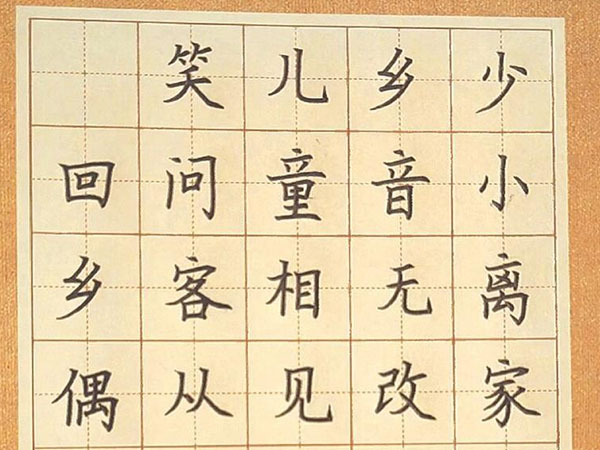 少小离家
乡音无改
儿童相见
笑问客从
回乡偶